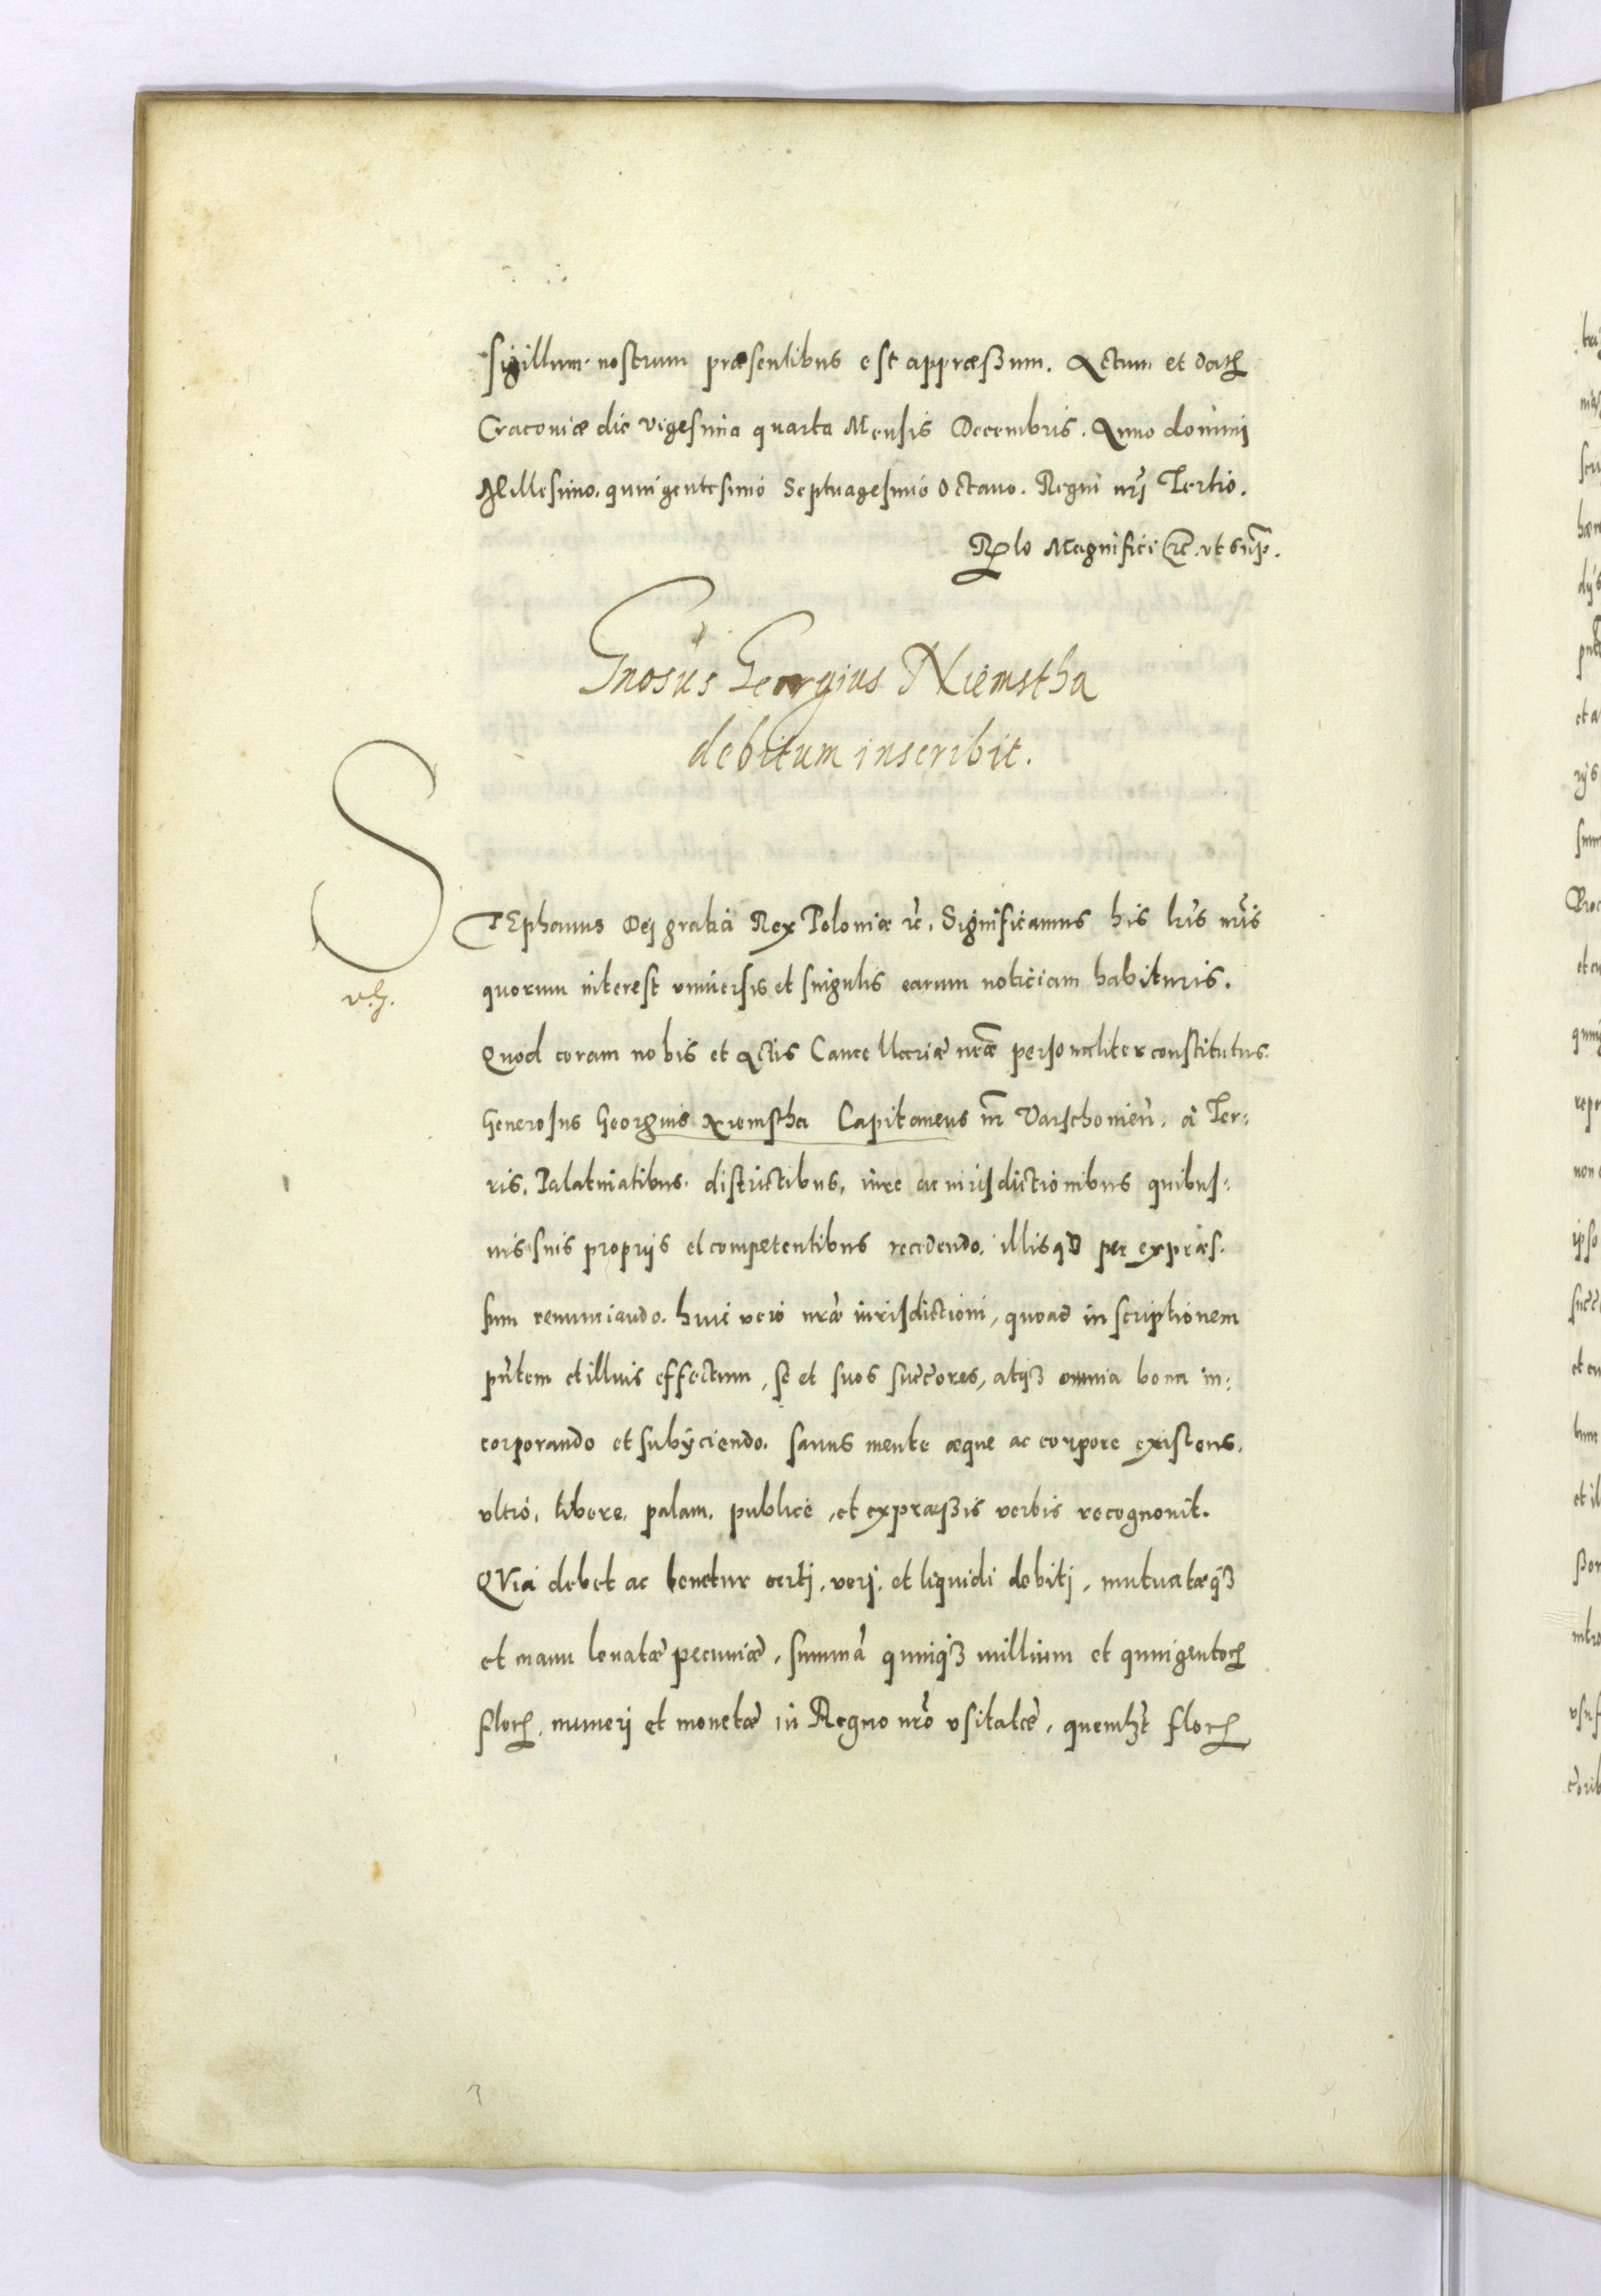 sigillum nostrum præsentibus est appræßum. Actum et datꝝ
Cracoviæ die vigesima quarta Mensis Decembris. Anno domini
Millesimo. quingentesimo Septuagesimo Octavo. Regni nr̃i Tertio.
Rẽlo Magnifici etc̃. ut sup̃.
Gnosus Georgius Niemstha
debitum inscribit.
STEphanus Dei gratia Rex Poloniæ etc̃. Significamus his lr̃is nr̃is
quorum interest universis et singulis earum noticiam habituris.
Quod coram nobis et Actis Cancellariæ nr̃æ personaliter constitutus
Generosus Georgius Niemstha Capitaneus nr̃ Varschovien̄. à Ter:
ris, Palatinatibus. districtibus, iure ac iurisdictionibus quibus:
vis suis proprijs et competentibus recedendo. illisq̃ per expræs.
sum renunciando. huic vero nr̃æ iurisdictioni, quoad inscriptionem
pñtem et illius effectum, se et suos succ̃ores, atqȝ omnia bona in:
corporando et subijciendo. sanus mente æque ac corpore existens.
ultro, libere, palam, publice, et expræßis verbis recognovit.
QVia debet ac tenetur certi, veri, et liquidi debiti, mutuatæqȝ
et manu levatæ pecuniæ, summã quinqȝ millium et quingentoꝝ
floꝝ, numeri et monetæ in Regno nr̃o usitatæ, quemlȝt floꝝ